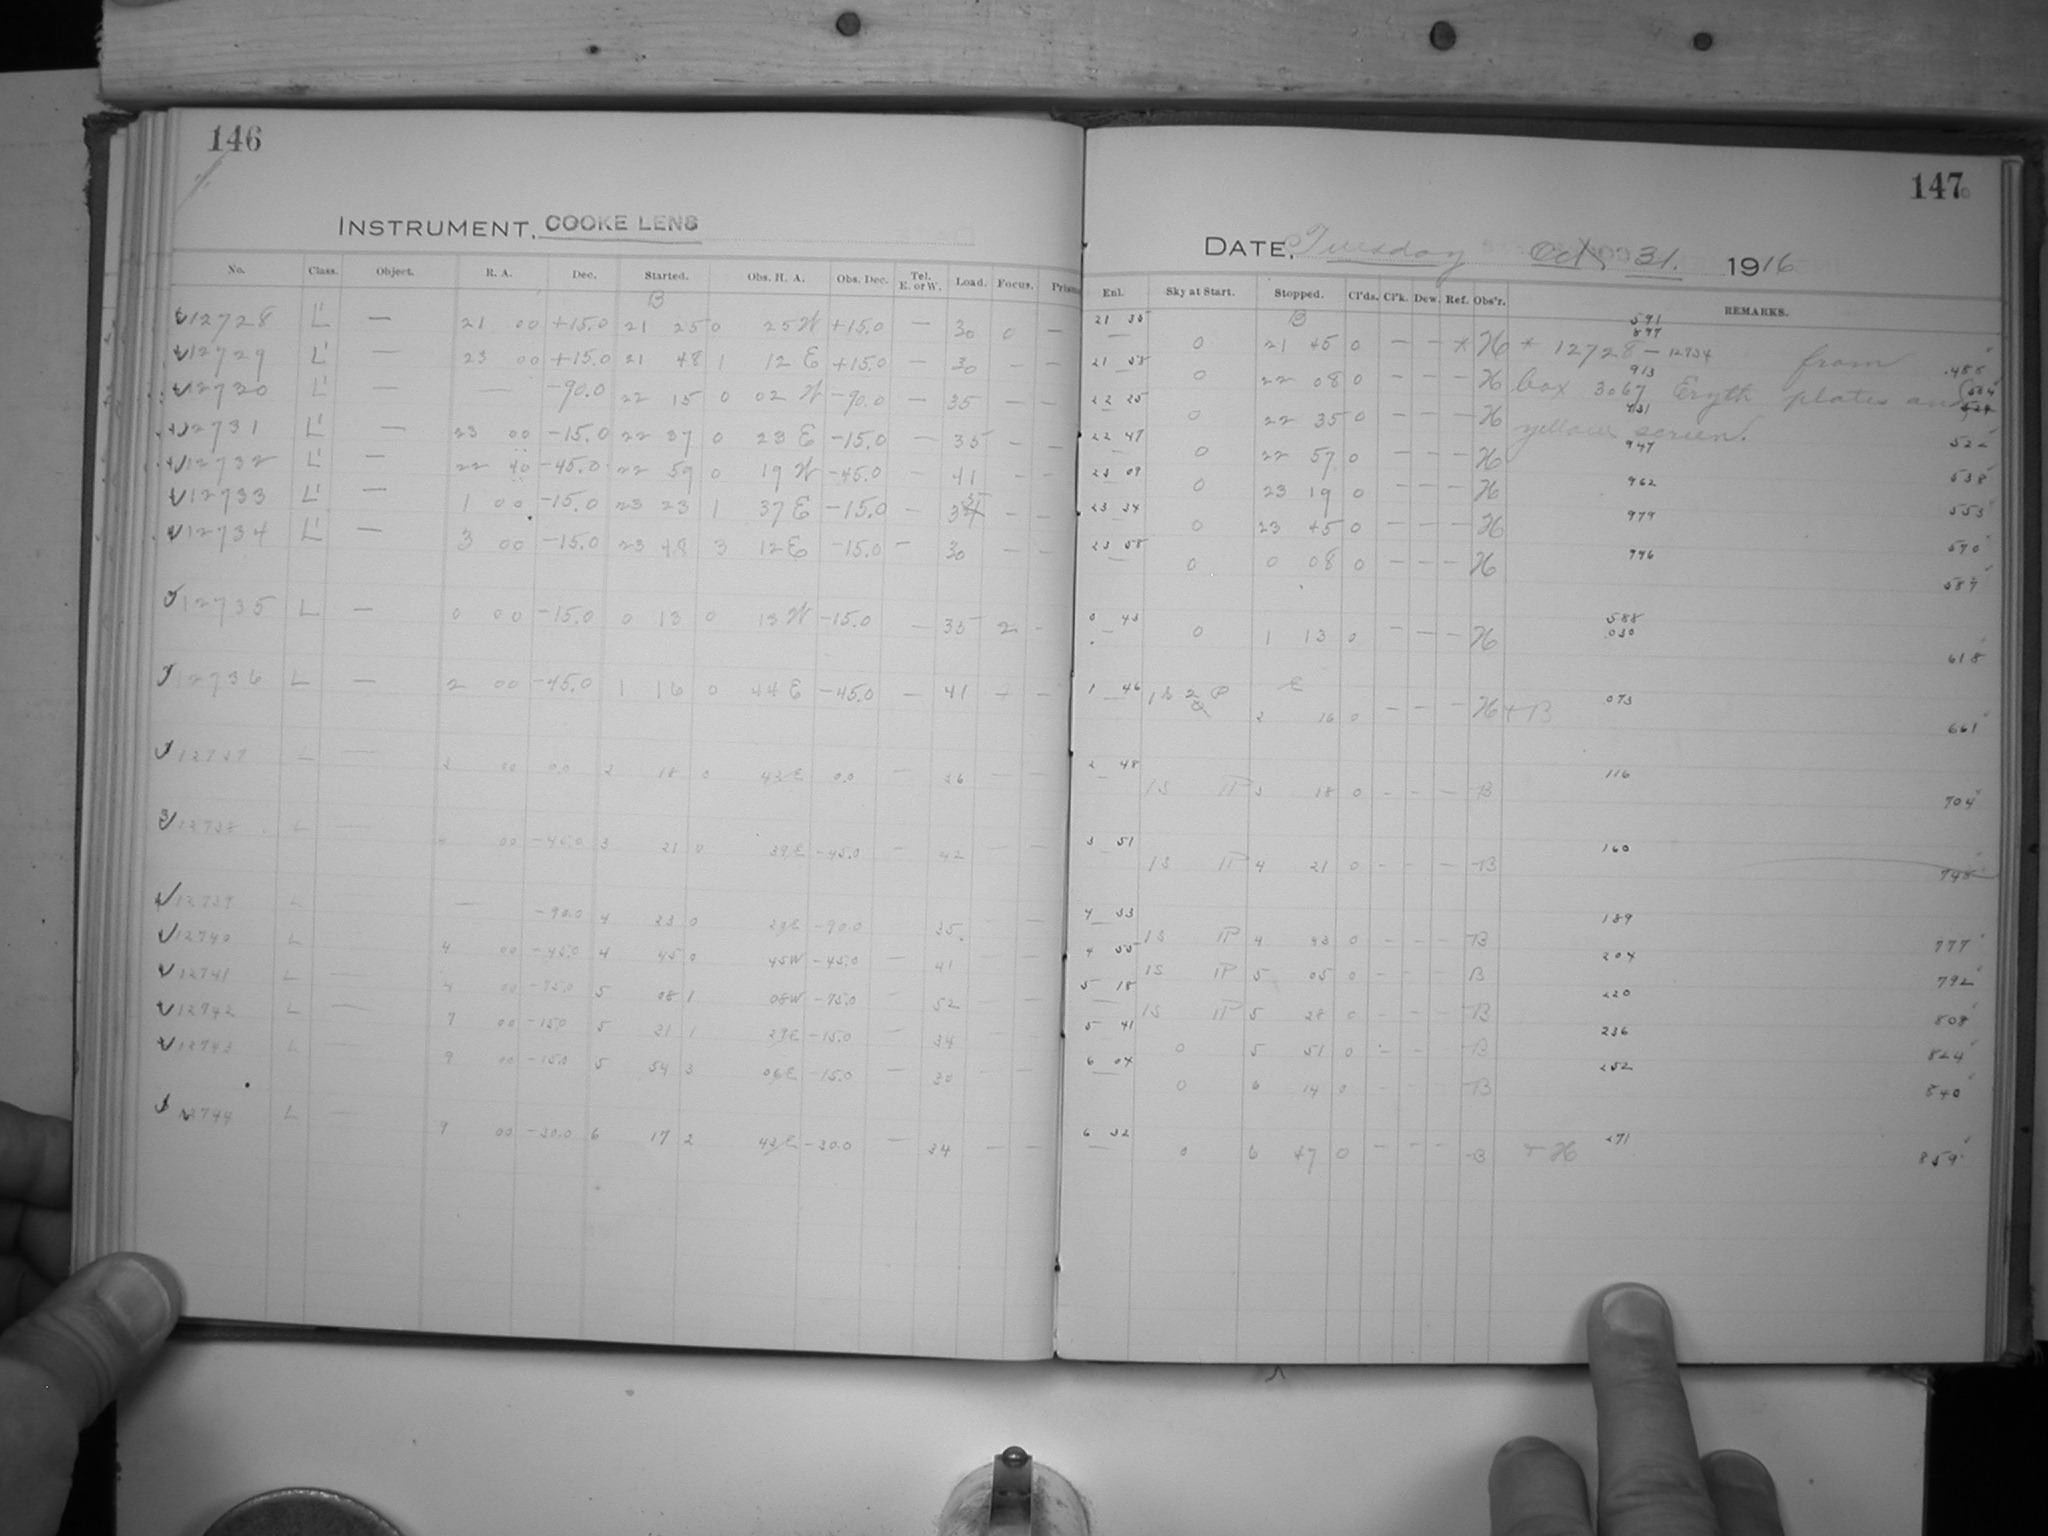 146
147
INSTRUMENT. COOKE LENS
DATE, Tuesday Oct 31. 1916
No. Class. Object. R. A. Dec. Started. Obs. H. A. Obs. Dec. Tel. E. or W. Load. Focus. Prisms Enl. Sky at Start. Stopped. Cl'ds. Cl'k. Dew. Ref. Obs'r. REMARKS.
B B 591
12728 L' — 21 00 +15.0 21 25 0 25 W +15.0 — 30 0 — 21 35 0 21 45 0 — — * H * 12728 — 12734 from .488
12729 L' — 23 00 +15.0 21 48 1 12 E +15.0 — 30 — — 21 58 0 22 08 0 — — — H 913 box 3067 Eryth plates and
12730 L' — — -90.0 22 15 0 02 W -90.0 — 35 — — 22 25 0 22 35 0 — — — H 931 yellow screen. 522
12731 L' — 23 00 -15.0 22 37 0 23 E -15.0 — 35 — — 22 47 0 22 57 0 — — — H 947 538
12732 L' — 22 40 -45.0 22 59 0 19 W -45.0 — 41 — — 23 09 0 23 19 0 — — — H 962 553
12733 L' — 1 00 -15.0 23 23 1 37 E -15.0 — 35 — — 23 34 0 23 45 0 — — — H 979 570
12734 L' — 3 00 -15.0 23 48 3 12 E -15.0 — 30 — — 23 58 0 0 08 0 — — — H 996 587
12735 L — 0 00 -15.0 0 13 0 13 W -15.0 — 35 2 — 0 43 0 1 13 0 — — — H 588 .030 618
12736 L — 2 00 -45.0 1 16 0 44 E -45.0 — 41 — 1 46 1 S 2 P E 2 16 0 — — — H + B 073 661
12737 L — 3 00 0.0 2 18 0 42 E 0.0 — 36 — — 2 48 1S 1P 3 18 0 — — — B 116 704
12738 L — 4 00 -45.0 3 21 0 39 E -45.0 — 42 — — 3 51 1S 1P 4 21 0 — — — B 160 748
12739 L — -90.0 4 23 0 -90.0 35 — 4 33 1S 1P 4 43 0 — — — B 189 777
12740 L 4 00 -45.0 4 45 0 45 W -45.0 — 41 — — 4 55 1S 1P 5 05 0 — — — B 204 792
12741 L 4 00 -75.0 5 08 1 08 W -75.0 — 52 — — 5 18 1S 1P 5 28 0 — — — B 220 808
12742 L — 7 00 -15.0 5 31 1 29 E -15.0 — 34 — 5 41 0 5 51 0 — — — B 236 824
12743 L — 9 00 -15.0 5 54 3 06 E -15.0 — 30 — — 6 04 0 6 14 0 — — — B 252 840
12744 L — 9 00 -30.0 6 17 2 43 E -30.0 — 34 — — 6 32 0 6 47 0 — — — B + H 271 859